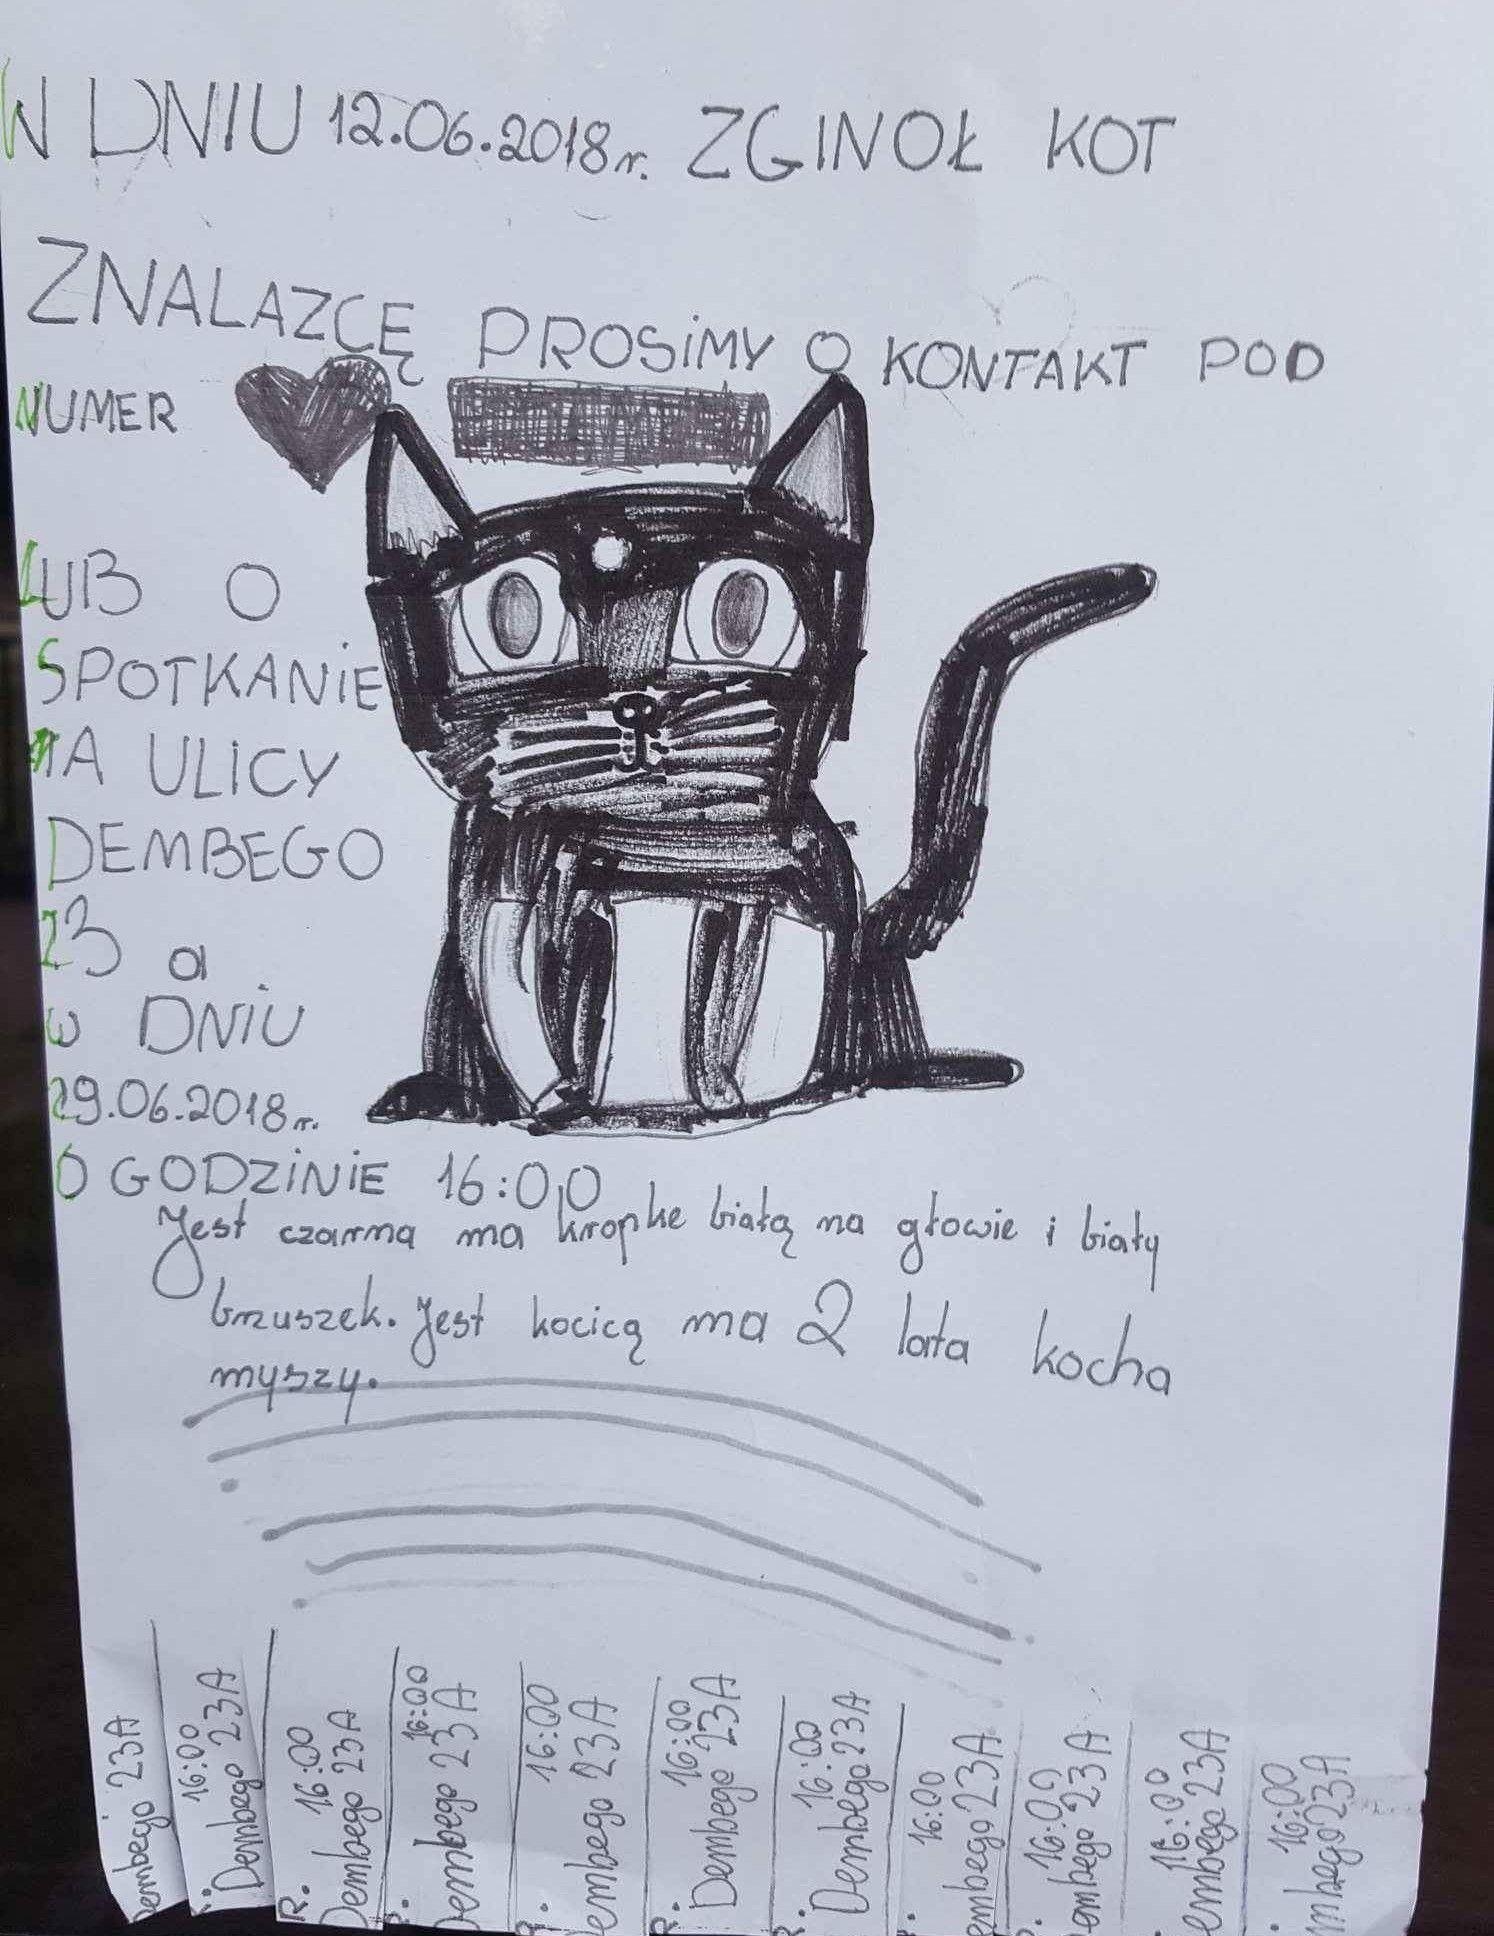 W DNIU 12.06.2018r. ZGINOŁ KOT
ZNALAZCĘ PROSIMY O KONTAKT POD
NUMER
LUB O
SPOTKANIE
NA ULICY
DEMBEGO
23 a
W DNIU
29.06.2018r.
O GODZINIE 16:00
Jest czarna ma kropke białą na głowie i biały
brzuszek. Jest kocicą ma 2 lata kocha
myszy.
Dembego 23A
16:00
Dembego 23A
R. 16:00
Dembego 23A
16:00
Dembego 23A
16:00
Dembego 23A
R. 16:00
Dembego 23A
R. 16:00
Dembego 23A
16:00
embego 23A
16:00
embego 23A
16:00
embego 23A
16:00
mbego 23A